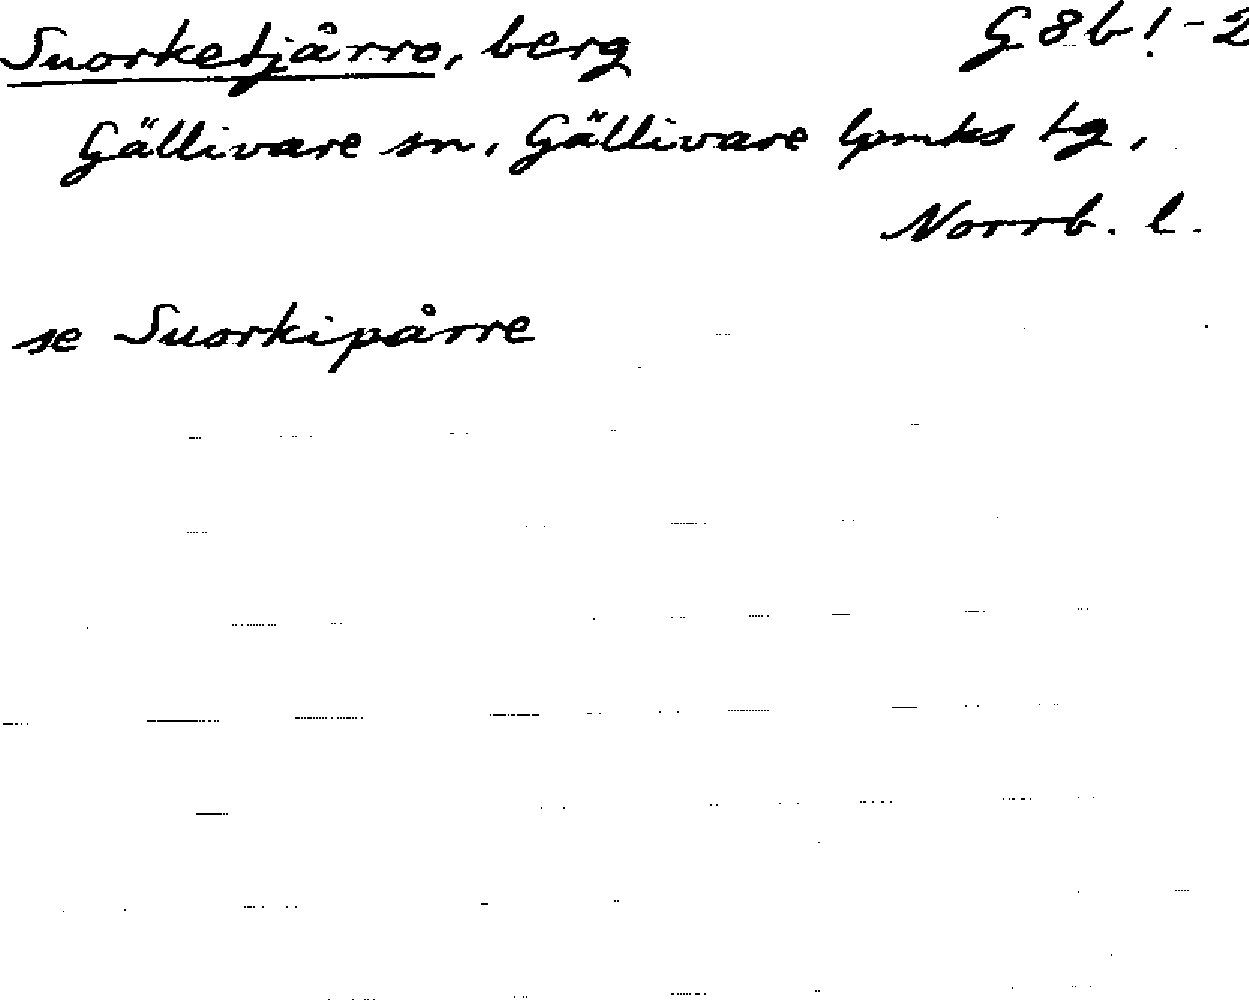 Suorketjårro, berg G 8b! - 2
Gällivare sn, Gällivare lpmks tg,
Norrb. l.
se Suorkipårre